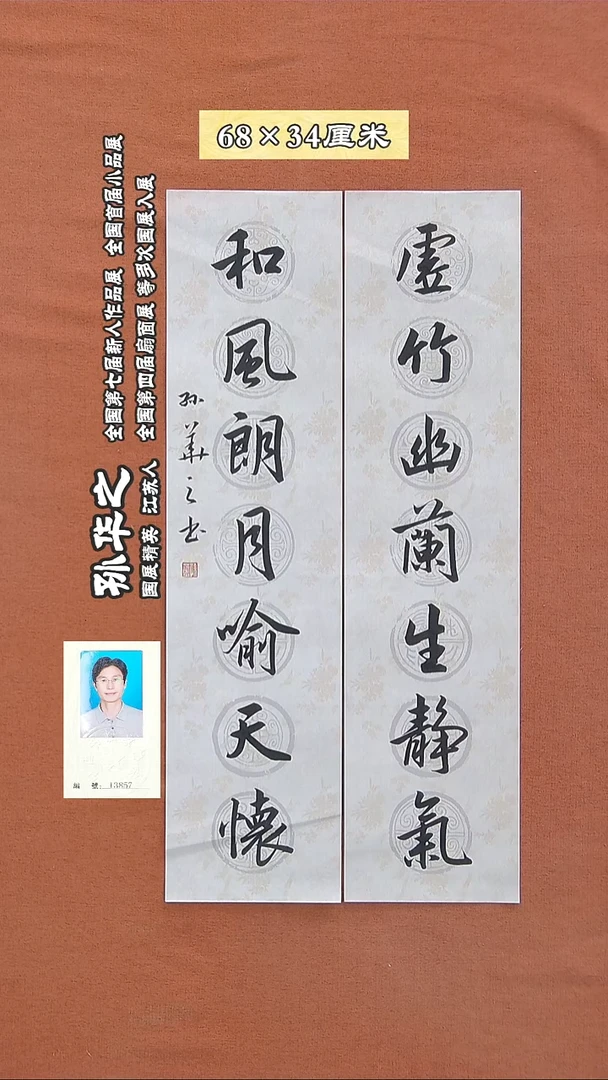 68×34厘米
虚竹幽蘭生静氣
和風朗月喻天懷
孙華之书
孙华之
国展精英 江苏人
全国第七届新人作品展 全国首届小品展
全国第四届扇面展 等多次国展入展
編 號：13857